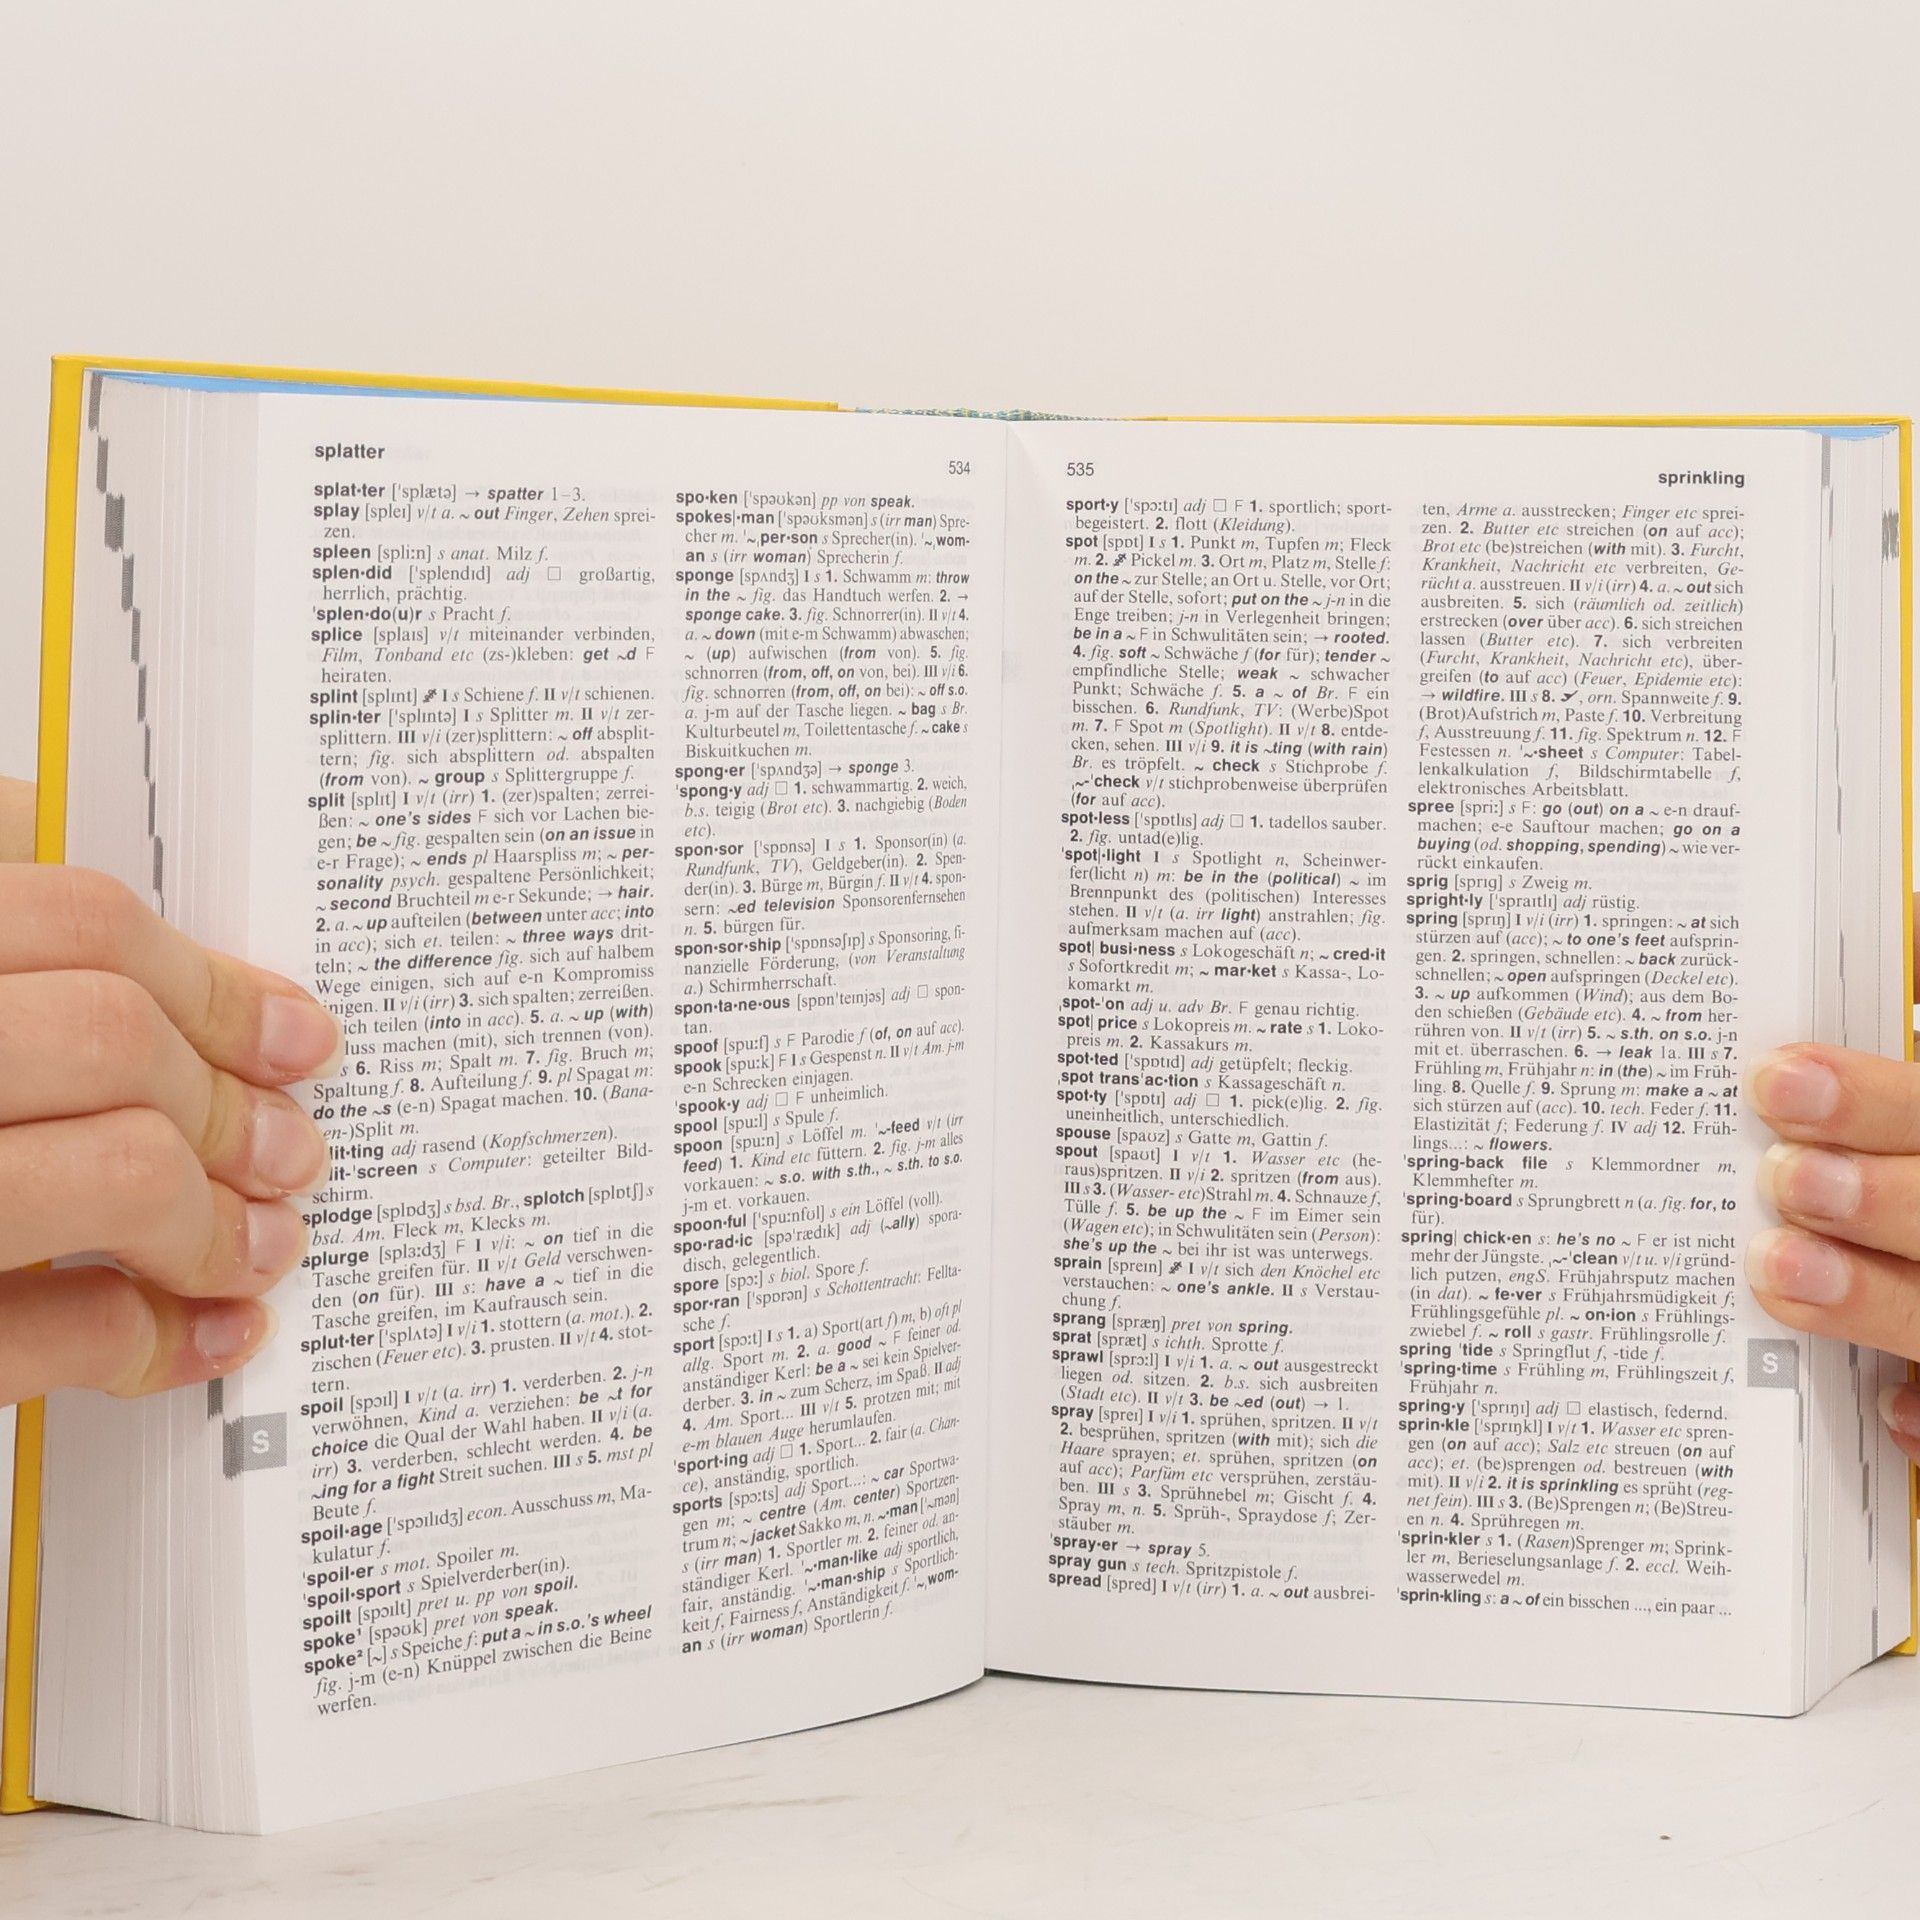 splatter
534
splat·ter ['splætə] → spatter 1–3.
splay [spleɪ] v/t a. ~ out Finger, Zehen sprei-
zen.
spleen [spliːn] s anat. Milz f.
splen·did ['splendɪd] adj □ großartig,
herrlich, prächtig.
'splen·do(u)r s Pracht f.
splice [splaɪs] v/t miteinander verbinden,
Film, Tonband etc (zs-)kleben: get ~d F
heiraten.
splint [splɪnt] I s Schiene f. II v/t schienen.
splin·ter ['splɪntə] I s Splitter m. II v/t zer-
splittern. III v/i (zer)splittern: ~ off absplit-
tern; fig. sich absplittern od. abspalten
(from von). ~ group s Splittergruppe f.
split [splɪt] I v/t (irr) 1. (zer)spalten; zerrei-
ßen: ~ one's sides F sich vor Lachen bie-
gen; be ~ fig. gespalten sein (on an issue in
e-r Frage); ~ ends pl Haarspliss m; ~ per-
sonality psych. gespaltene Persönlichkeit;
~ second Bruchteil m e-r Sekunde; → hair.
2. a. ~ up aufteilen (between unter acc; into
in acc); sich et. teilen: ~ three ways drit-
teln; ~ the difference fig. sich auf halbem
Wege einigen, sich auf e-n Kompromiss
inigen. II v/i (irr) 3. sich spalten; zerreißen.
ich teilen (into in acc). 5. a. ~ up (with)
luss machen (mit), sich trennen (von).
s 6. Riss m; Spalt m. 7. fig. Bruch m;
Spaltung f. 8. Aufteilung f. 9. pl Spagat m:
do the ~s (e-n) Spagat machen. 10. (Bana-
en-)Split m.
lit·ting adj rasend (Kopfschmerzen).
lit-'screen s Computer: geteilter Bild-
schirm.
splodge [splɒdʒ] s bsd. Br., splotch [splɒtʃ] s
bsd. Am. Fleck m, Klecks m.
splurge [splɜːdʒ] F I v/i: ~ on tief in die
Tasche greifen für. II v/t Geld verschwen-
den (on für). III s: have a ~ tief in die
Tasche greifen, im Kaufrausch sein.
splut·ter ['splʌtə] I v/i 1. stottern (a. mot.). 2.
zischen (Feuer etc). 3. prusten. II v/t 4. stot-
tern.
spoil [spɔɪl] I v/t (a. irr) 1. verderben. 2. j-n
verwöhnen, Kind a. verziehen: be ~t for
choice die Qual der Wahl haben. II v/i (a.
irr) 3. verderben, schlecht werden. 4. be
~ing for a fight Streit suchen. III s 5. mst pl
Beute f.
spoil·age ['spɔɪlɪdʒ] econ. Ausschuss m, Ma-
kulatur f.
'spoil·er s mot. Spoiler m.
'spoil·sport s Spielverderber(in).
spoilt [spɔɪlt] pret u. pp von spoil.
spoke¹ [spəʊk] pret von speak.
spoke² [~] s Speiche f: put a ~ in s.o.'s wheel
fig. j-m (e-n) Knüppel zwischen die Beine
werfen.
spo·ken ['spəʊkən] pp von speak.
spokes|·man ['spəʊksmən] s (irr man) Spre-
cher m. '~ˌper·son s Sprecher(in). '~ˌwom-
an s (irr woman) Sprecherin f.
sponge [spʌndʒ] I s 1. Schwamm m: throw
in the ~ fig. das Handtuch werfen. 2. →
sponge cake. 3. fig. Schnorrer(in). II v/t 4.
a. ~ down (mit e-m Schwamm) abwaschen;
~ (up) aufwischen (from von). 5. fig.
schnorren (from, off, on von, bei). III v/i 6.
fig. schnorren (from, off, on bei): ~ off s.o.
a. j-m auf der Tasche liegen. ~ bag s Br.
Kulturbeutel m, Toilettentasche f. ~ cake s
Biskuitkuchen m.
spong·er ['spʌndʒə] → sponge 3.
'spong·y adj □ 1. schwammartig. 2. weich,
b.s. teigig (Brot etc). 3. nachgiebig (Boden
etc).
spon·sor ['spɒnsə] I s 1. Sponsor(in) (a.
Rundfunk, TV), Geldgeber(in). 2. Spen-
der(in). 3. Bürge m, Bürgin f. II v/t 4. spon-
sern: ~ed television Sponsorenfernsehen
n. 5. bürgen für.
spon·sor·ship ['spɒnsəʃɪp] s Sponsoring, fi-
nanzielle Förderung, (von Veranstaltung
a.) Schirmherrschaft.
spon·ta·ne·ous [spɒn'teɪnjəs] adj □ spon-
tan.
spoof [spuːf] s F Parodie f (of, on auf acc).
spook [spuːk] F I s Gespenst n. II v/t Am. j-m
e-n Schrecken einjagen.
'spook·y adj □ F unheimlich.
spool [spuːl] s Spule f.
spoon [spuːn] s Löffel m. '~-feed v/t (irr
feed) 1. Kind etc füttern. 2. fig. j-m alles
vorkauen: ~ s.o. with s.th., ~ s.th. to s.o.
j-m et. vorkauen.
spoon·ful ['spuːnfʊl] s ein Löffel (voll).
spo·rad·ic [spə'rædɪk] adj (~ally) spora-
disch, gelegentlich.
spore [spɔː] s biol. Spore f.
spor·ran ['spɒrən] s Schottentracht: Fellta-
sche f.
sport [spɔːt] I s 1. a) Sport(art f) m, b) oft pl
allg. Sport m. 2. a. good ~ F feiner od.
anständiger Kerl: be a ~ sei kein Spielver-
derber. 3. in ~ zum Scherz, im Spaß. II adj
4. Am. Sport... III v/t 5. protzen mit; mit
e-m blauen Auge herumlaufen.
'sport·ing adj □ 1. Sport... 2. fair (a. Chan-
ce), anständig, sportlich.
sports [spɔːts] adj Sport...: ~ car Sportwa-
gen m; ~ centre (Am. center) Sportzen-
trum n; ~ jacket Sakko m, n. ~·man ['~mən]
s (irr man) 1. Sportler m. 2. feiner od. an-
ständiger Kerl. '~·man·like adj sportlich,
fair, anständig. '~·man·ship s Sportlich-
keit f, Fairness f, Anständigkeit f. '~ˌwom-
an s (irr woman) Sportlerin f.
S
535
sprinkling
sport·y ['spɔːtɪ] adj □ F 1. sportlich; sport-
begeistert. 2. flott (Kleidung).
spot [spɒt] I s 1. Punkt m, Tupfen m; Fleck
m. 2. Pickel m. 3. Ort m, Platz m, Stelle f:
on the ~ zur Stelle; an Ort u. Stelle, vor Ort;
auf der Stelle, sofort; put on the ~ j-n in die
Enge treiben; j-n in Verlegenheit bringen;
be in a ~ F in Schwulitäten sein; → rooted.
4. fig. soft ~ Schwäche f (for für); tender ~
empfindliche Stelle; weak ~ schwacher
Punkt; Schwäche f. 5. a ~ of Br. F ein
bisschen. 6. Rundfunk, TV: (Werbe)Spot
m. 7. F Spot m (Spotlight). II v/t 8. entde-
cken, sehen. III v/i 9. it is ~ting (with rain)
Br. es tröpfelt. ~ check s Stichprobe f.
ˌ~-'check v/t stichprobenweise überprüfen
(for auf acc).
spot·less ['spɒtlɪs] adj □ 1. tadellos sauber.
2. fig. untad(e)lig.
'spot|·light I s Spotlight n, Scheinwer-
fer(licht n) m: be in the (political) ~ im
Brennpunkt des (politischen) Interesses
stehen. II v/t (a. irr light) anstrahlen; fig.
aufmerksam machen auf (acc).
spot| busi·ness s Lokogeschäft n; ~ cred·it
s Sofortkredit m; ~ mar·ket s Kassa-, Lo-
komarkt m.
ˌspot-'on adj u. adv Br. F genau richtig.
spot| price s Lokopreis m. ~ rate s 1. Loko-
preis m. 2. Kassakurs m.
spot·ted ['spɒtɪd] adj getüpfelt; fleckig.
ˌspot trans'ac·tion s Kassageschäft n.
spot·ty ['spɒtɪ] adj □ 1. pick(e)lig. 2. fig.
uneinheitlich, unterschiedlich.
spouse [spaʊz] s Gatte m, Gattin f.
spout [spaʊt] I v/t 1. Wasser etc (he-
raus)spritzen. II v/i 2. spritzen (from aus).
III s 3. (Wasser- etc)Strahl m. 4. Schnauze f,
Tülle f. 5. be up the ~ F im Eimer sein
(Wagen etc); in Schwulitäten sein (Person):
she's up the ~ bei ihr ist was unterwegs.
sprain [spreɪn] I v/t sich den Knöchel etc
verstauchen: ~ one's ankle. II s Verstau-
chung f.
sprang [spræŋ] pret von spring.
sprat [spræt] s ichth. Sprotte f.
sprawl [sprɔːl] I v/i 1. a. ~ out ausgestreckt
liegen od. sitzen. 2. b.s. sich ausbreiten
(Stadt etc). II v/t 3. be ~ed (out) → 1.
spray [spreɪ] I v/i 1. sprühen, spritzen. II v/t
2. besprühen, spritzen (with mit); sich die
Haare sprayen; et. sprühen, spritzen (on
auf acc); Parfüm etc versprühen, zerstäu-
ben. III s 3. Sprühnebel m; Gischt f. 4.
Spray m, n. 5. Sprüh-, Spraydose f; Zer-
stäuber m.
'spray·er → spray 5.
spray gun s tech. Spritzpistole f.
spread [spred] I v/t (irr) 1. a. ~ out ausbrei-
ten, Arme a. ausstrecken; Finger etc sprei-
zen. 2. Butter etc streichen (on auf acc);
Brot etc (be)streichen (with mit). 3. Furcht,
Krankheit, Nachricht etc verbreiten, Ge-
rücht a. ausstreuen. II v/i (irr) 4. a. ~ out sich
ausbreiten. 5. sich (räumlich od. zeitlich)
erstrecken (over über acc). 6. sich streichen
lassen (Butter etc). 7. sich verbreiten
(Furcht, Krankheit, Nachricht etc), über-
greifen (to auf acc) (Feuer, Epidemie etc):
→ wildfire. III s 8. , orn. Spannweite f. 9.
(Brot)Aufstrich m, Paste f. 10. Verbreitung
f, Ausstreuung f. 11. fig. Spektrum n. 12. F
Festessen n. '~·sheet s Computer: Tabel-
lenkalkulation f, Bildschirmtabelle f,
elektronisches Arbeitsblatt.
spree [spriː] s F: go (out) on a ~ e-n drauf-
machen; e-e Sauftour machen; go on a
buying (od. shopping, spending) ~ wie ver-
rückt einkaufen.
sprig [sprɪg] s Zweig m.
spright·ly ['spraɪtlɪ] adj rüstig.
spring [sprɪŋ] I v/i (irr) 1. springen: ~ at sich
stürzen auf (acc); ~ to one's feet aufsprin-
gen. 2. springen, schnellen: ~ back zurück-
schnellen; ~ open aufspringen (Deckel etc).
3. ~ up aufkommen (Wind); aus dem Bo-
den schießen (Gebäude etc). 4. ~ from her-
rühren von. II v/t (irr) 5. ~ s.th. on s.o. j-n
mit et. überraschen. 6. → leak 1a. III s 7.
Frühling m, Frühjahr n: in (the) ~ im Früh-
ling. 8. Quelle f. 9. Sprung m: make a ~ at
sich stürzen auf (acc). 10. tech. Feder f. 11.
Elastizität f; Federung f. IV adj 12. Früh-
lings...: ~ flowers.
'spring-back file s Klemmordner m,
Klemmhefter m.
'spring·board s Sprungbrett n (a. fig. for, to
für).
spring| chick·en s: he's no ~ F er ist nicht
mehr der Jüngste. ˌ~-'clean v/t u. v/i gründ-
lich putzen, engS. Frühjahrsputz machen
(in dat). ~ fe·ver s Frühjahrsmüdigkeit f;
Frühlingsgefühle pl. ~ on·ion s Frühlings-
zwiebel f. ~ roll s gastr. Frühlingsrolle f.
spring 'tide s Springflut f, -tide f.
'spring·time s Frühling m, Frühlingszeit f,
Frühjahr n.
spring·y ['sprɪŋɪ] adj □ elastisch, federnd.
sprin·kle ['sprɪŋkl] I v/t 1. Wasser etc spren-
gen (on auf acc); Salz etc streuen (on auf
acc); et. (be)sprengen od. bestreuen (with
mit). II v/i 2. it is sprinkling es sprüht (reg-
net fein). III s 3. (Be)Sprengen n; (Be)Streu-
en n. 4. Sprühregen m.
'sprin·kler s 1. (Rasen)Sprenger m; Sprink-
ler m, Berieselungsanlage f. 2. eccl. Weih-
wasserwedel m.
'sprin·kling s: a ~ of ein bisschen ..., ein paar ...
S